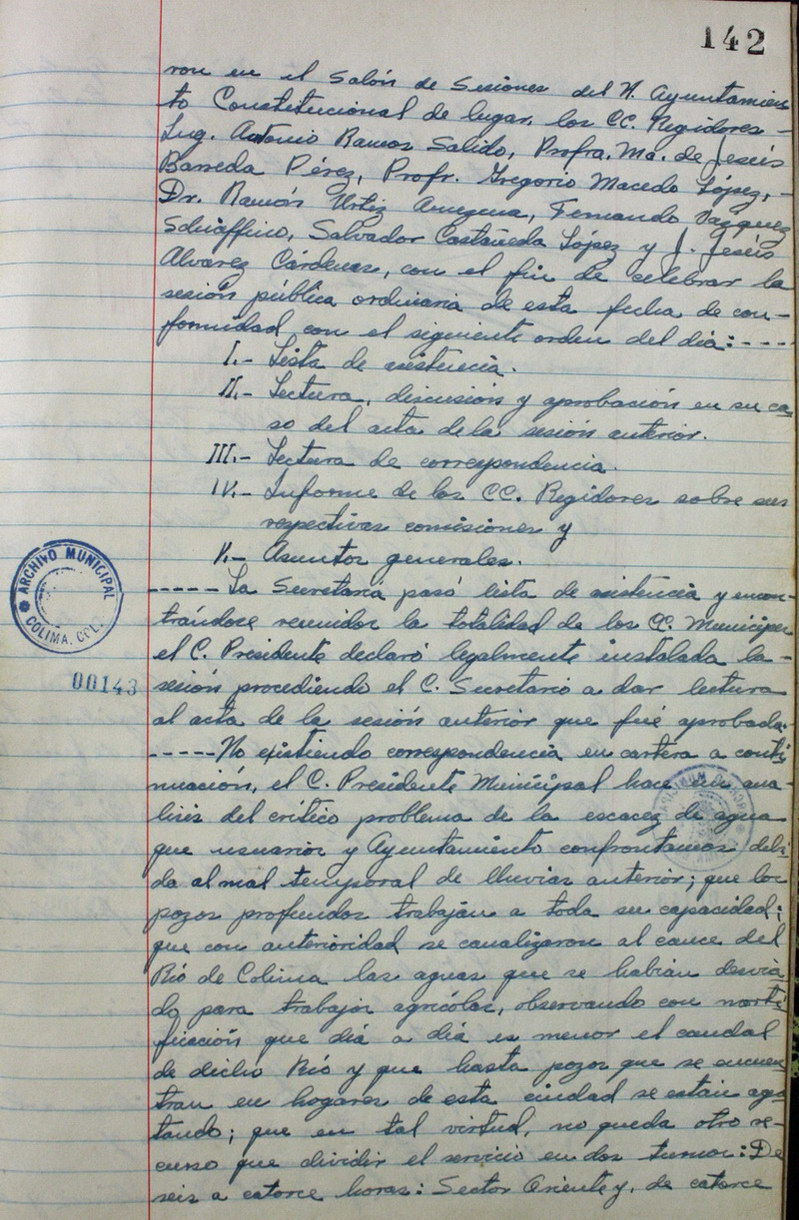 142
ron en el Salón de Sesiones del H. Ayuntamien
to Constitucional de lugar, los CC. Regidores -
Ing. Antonio Ramos Salido, Profra. Ma. de Jesús
Barreda Pérez, Profr. Gregorio Macedo López, -
Dr. Ramón Ortiz Amezcua, Fernando Vazquez
Schiaffino, Salvador Castañeda López y J. Jesús
Alvarez Cárdenas, con el fin de celebrar la
sesión pública ordinaria de esta fecha de con-
formidad con el siguiente orden del día: - - - -
I.- Lista de asistencia.
II.- Lectura, discusión y aprobación en su ca
so del acta de la sesión anterior.
III.- Lectura de correspondencia.
IV.- Informe de los CC. Regidores sobre sus
respectivas comisiones y
V.- Asuntos generales.
- - - - - La Secretaría pasó lista de asistencia y encon-
trándose reunidos la totalidad de los CC. Munícipes
el C. Presidente declaró legalmente instalada la-
sesión procediendo el C. Secretario a dar lectura
al acta de la sesión anterior que fué aprobada.-
- - - - - No existiendo correspondencia en cartera a conti
nuación, el C. Presidente Municipal hace un aná-
lisis del crítico problema de la escacez de agua
que usuarios y Ayuntamiento confrontamos debi
da al mal temporal de lluvias anterior; que los
pozos profundos trabajan a toda su capacidad;
que con anterioridad se canalizaron al cauce del
Río de Colima las aguas que se habían desvia
do para trabajos agrícolas, observando con morti
ficación que día a día es menor el caudal
de dicho Río y que hasta pozos que se encuen
tran en hogares de esta ciudad se están ago
tando; que en tal virtud, no queda otro re-
curso que dividir el servicio en dos turnos: De
seis a catorce horas: Sector Oriente y, de catorce
ARCHIVO MUNICIPAL
COLIMA, COL.
00143